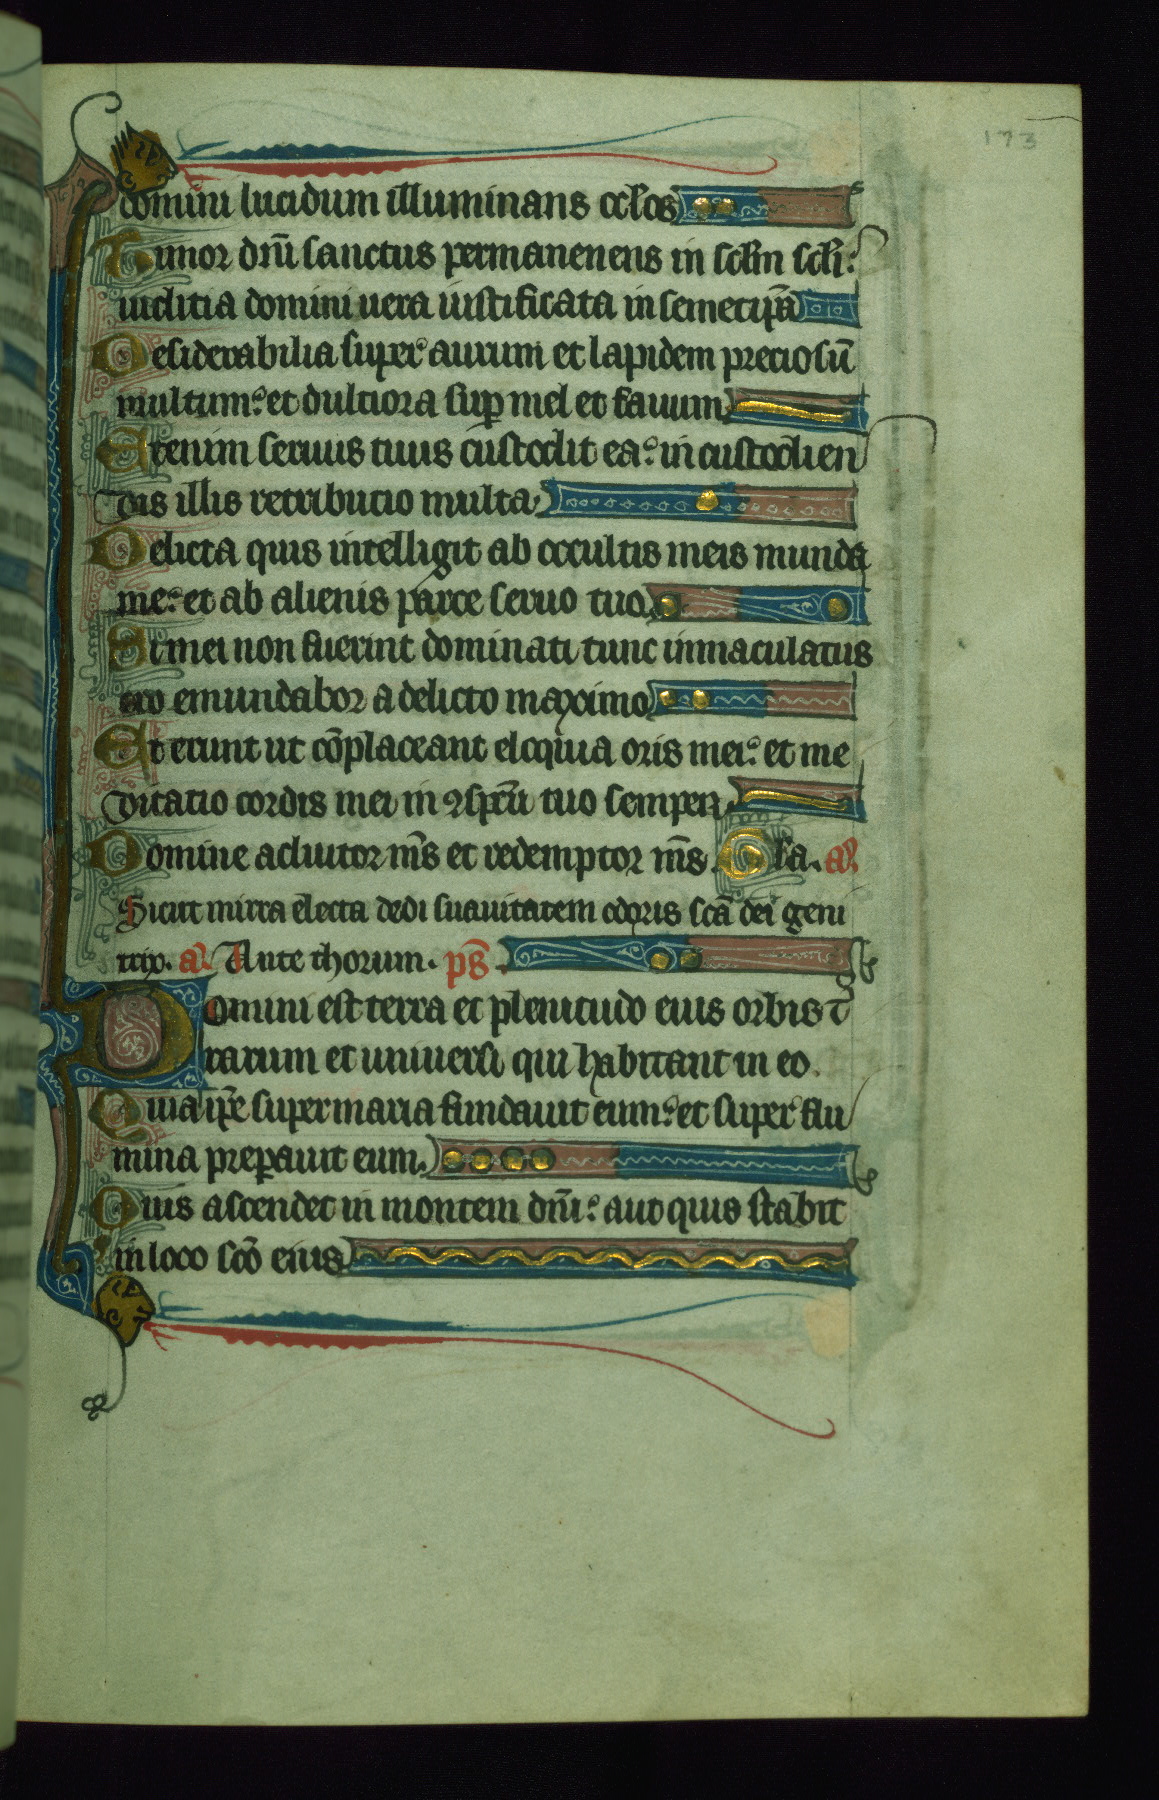 173
domini lucidum illuminans oclos
Timor dñi sanctus permanenens in sclm scli:
iudicia domini uera iustificata in semetip̃a
Desiderabilia super aurum et lapidem preciosũ
multum: et dulciora sup mel et fauum
Etenim seruus tuus custodit ea: in custodien
dis illis retributio multa
Delicta quis intelligit ab occultis meis munda
me: et ab alienis parce seruo tuo
Si mei non fuerint dominati tunc inmaculatus
ero emundabor a delicto maximo
Et erunt ut cõplaceant eloquia oris mei: et me
ditatio cordis mei in ꝯspc̃u tuo semper
Domine adiutor m̃s et redemptor m̃s. Gl̃a. a̕.
Sicut mirra electa dedi suauitatem odoris sc̃a dei geni
trix. a̕. Ante thorum. ps̃.
Domini est terra et plenitudo eius orbis t̕
rarum et uniuersi qui habitant in eo.
Quia ip̃e super maria fundauit eum: et super flu
mina preparauit eum.
Quis ascendet in montem dñi: aut quis stabit
in loco sc̃o eius